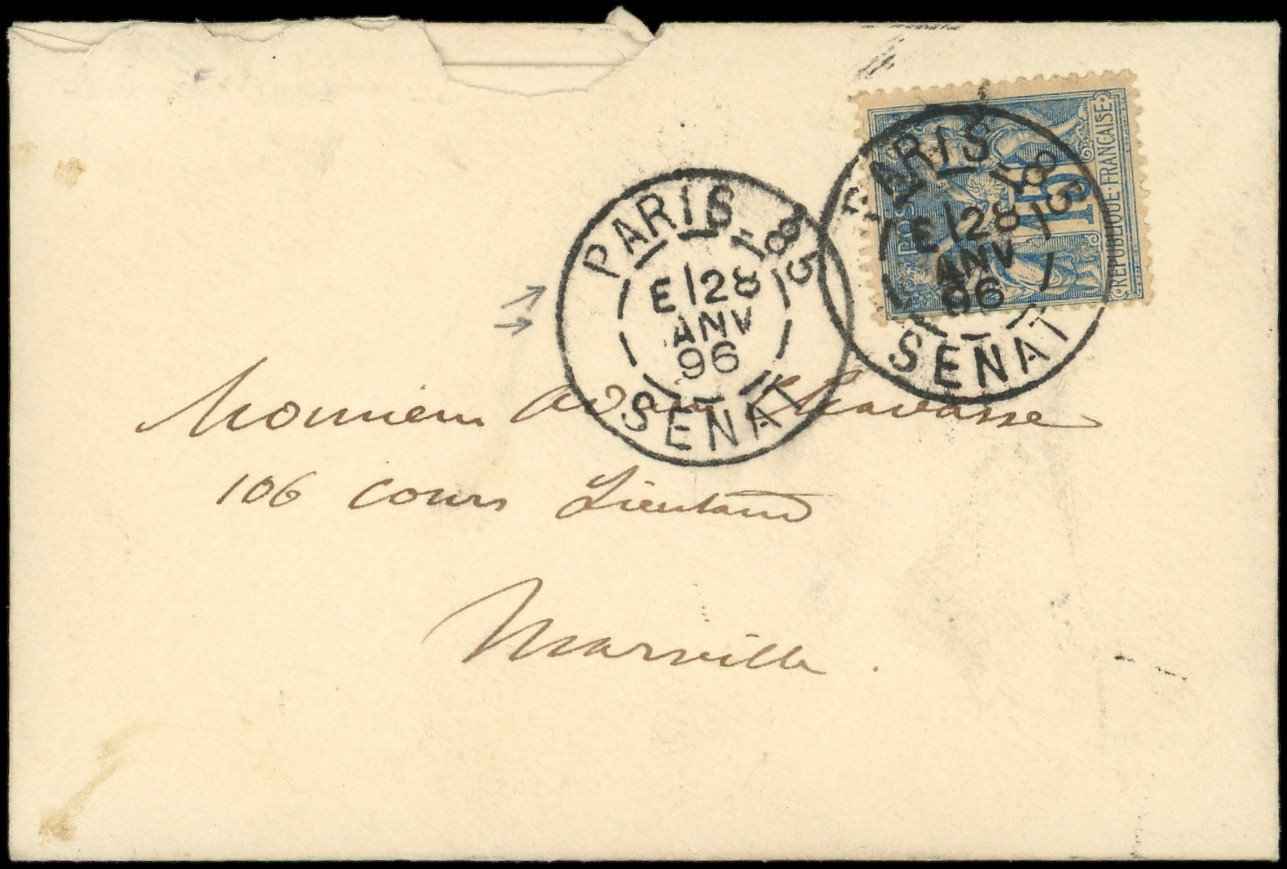 PARIS-85
E 28
ANV
96
SENAT
PARIS-85
E 28
ANV
96
SENAT
15
REPUBLIQUE FRANÇAISE
Monsieur Chavasse
106 cours Lieutaud
Marseille